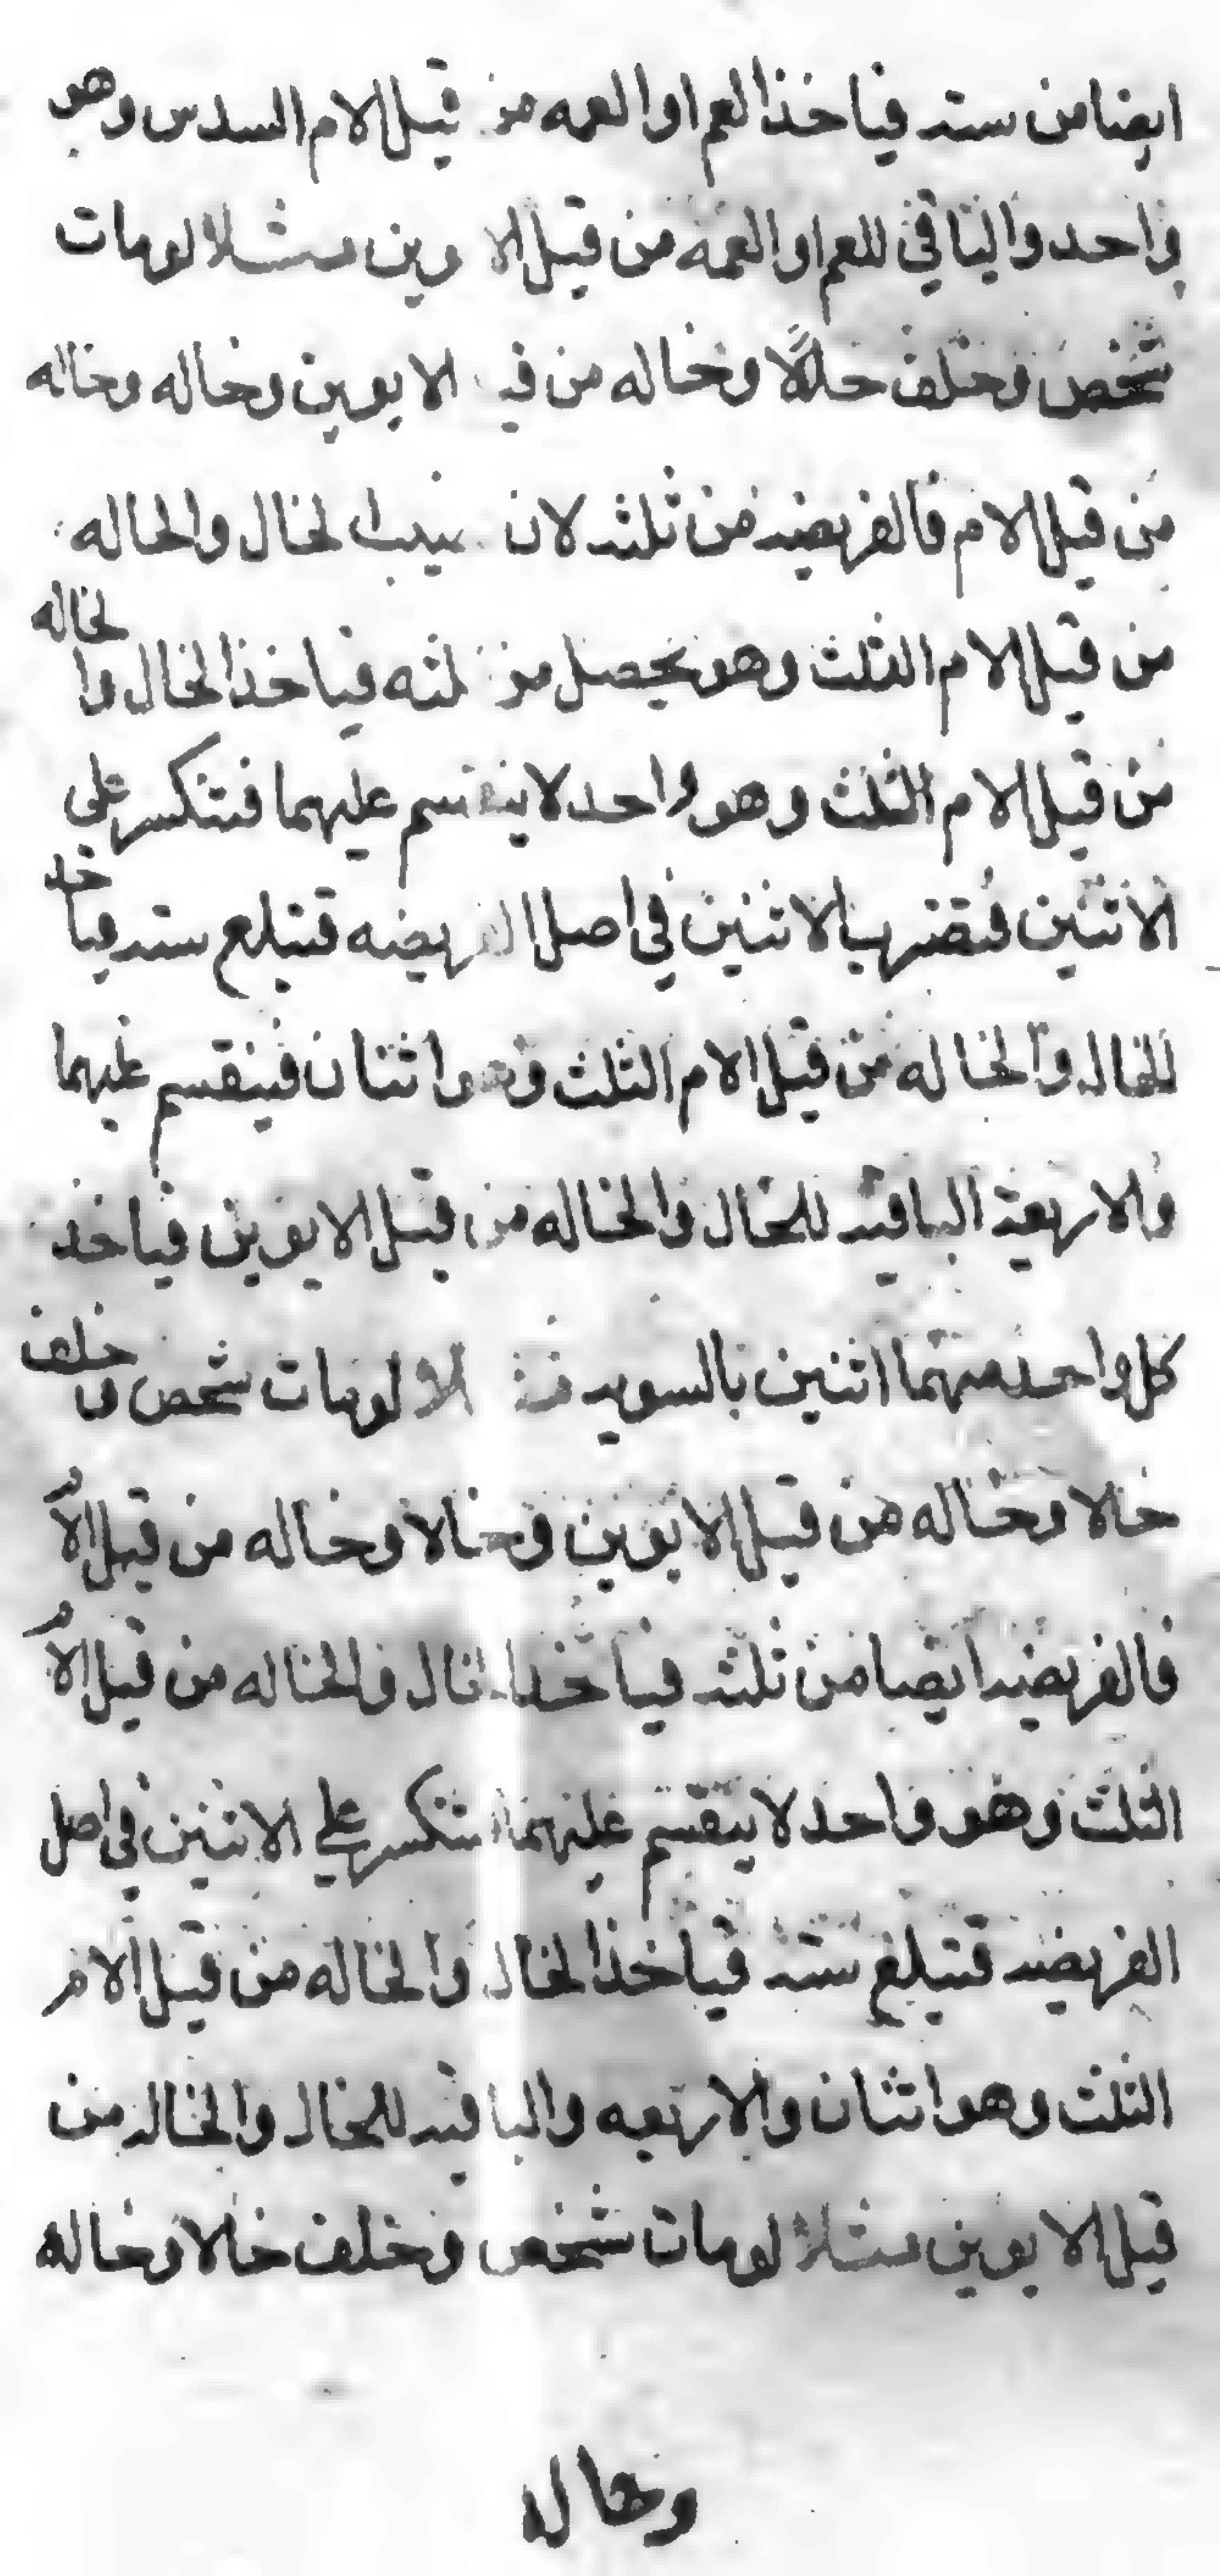 ايضا من سته فياخذ العم او العمه من قبل الام السدس وهو
واحد والباقي للعم او العمه من قبل الا وين مثلا لومات
شخص وخلف خالا وخاله من قبل الابوين وخاله وخاله
من قبل الام فالفريضه من ثلثه لان نصيب الخال والخاله
من قبل الام الثلث وهو يحصل من ثلثه فياخذ الخال والخاله
من قبل الام الثلث وهو واحد لا ينقسم عليهما فتنكسر على
الاثنين فتضرب الاثنين في اصل الفريضه فتبلع سته فياخد
للخال والخاله من قبل الام الثلث وهو اثنان فينقسم عليهما
والاربعة الباقيه للخال والخاله من قبل الابوين فياخذ
كل واحد منهما اثنين بالسويه مثلا لومات شخص وخلف
خالا وخاله من قبل الابوين وخالا وخاله من قبل الام
فالفريضه ايضا من ثلثه فياخذ الخال والخاله من قبل الام
الثلث وهو واحد لا ينقسم عليهما فتنكسر على الاثنين في اصل
الفريضه فتبلغ سته فياخذ الخال والخاله من قبل الام
الثلث وهو اثنان والاربعه والباقيه للخال والخاله من
قبل الابوين مثلا لومات شخص وخلف خالا وخاله
وخاله